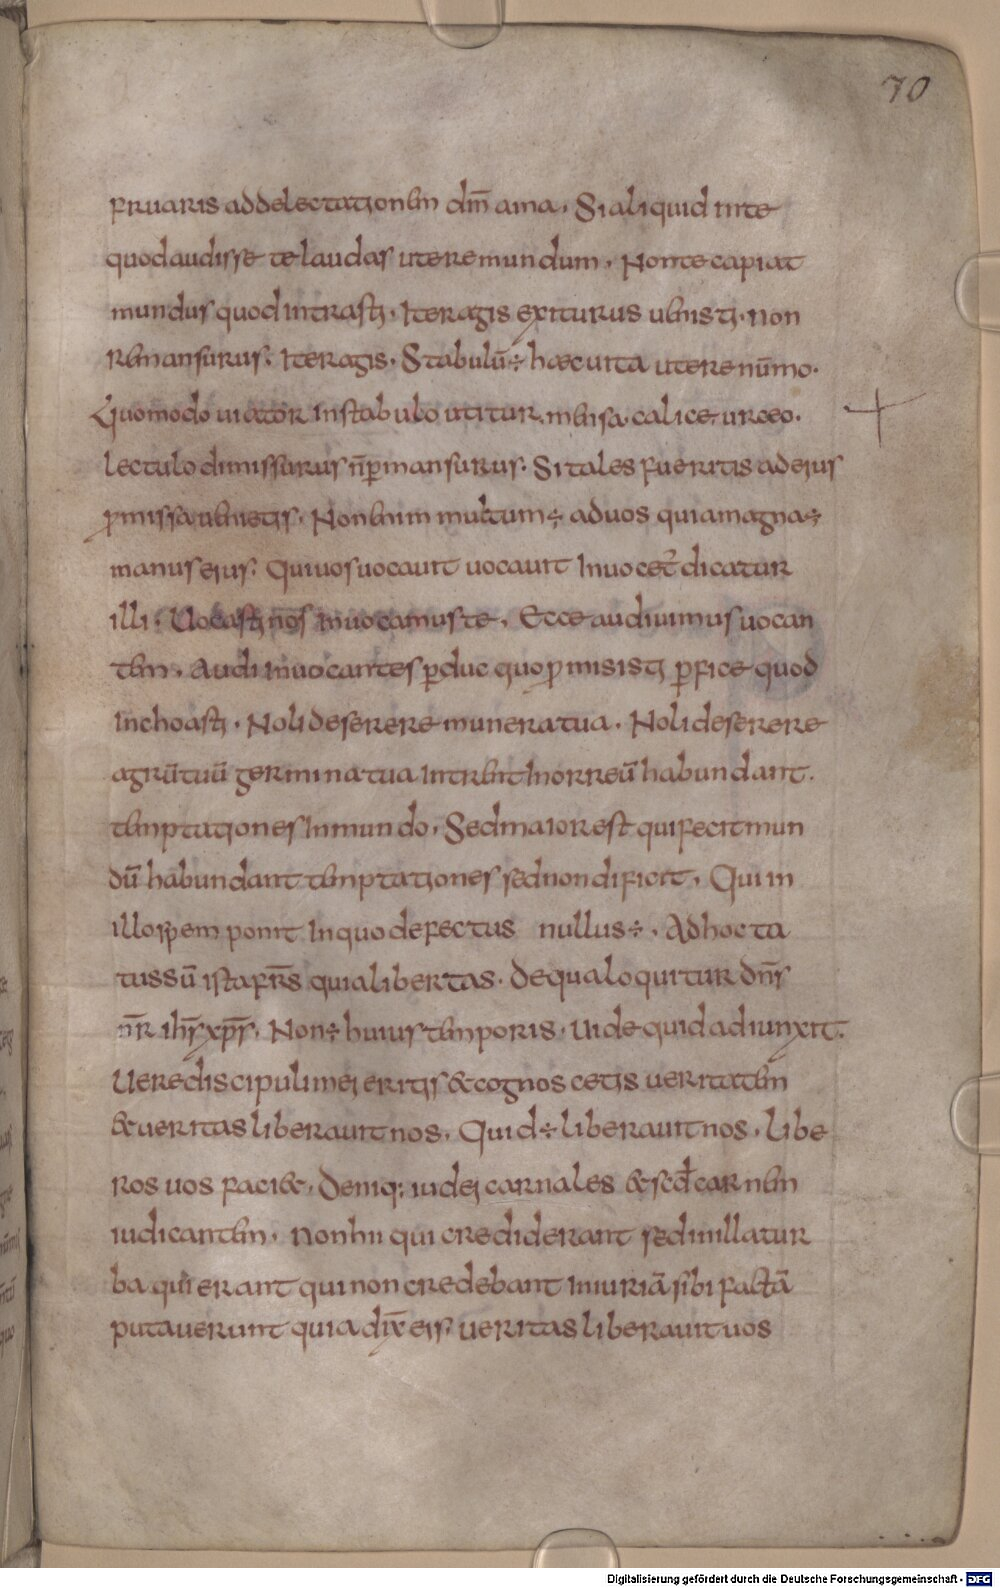 70
fruaris ad delectationem dm̄ ama. Si aliquid in te
quod audisse te laudas utere mundum. Non te capiat
mundus quod intrasti. Iter agis exiturus uenisti. non
remansurus. Iter agis. Stabulū ÷ haec uita utere nūmo.
Quomodo uiator in stabulo utitur. mensa. calice. urceo.
lectulo dimissurus n̄ p̄mansurus. Si tales fueritis ad eius
ꝓmissa uenietis. Non enim multum ÷ ad uos quia magna ÷
manus eius. Qui uos uocauit uocauit Inuocet̄ dicatur
illi. Uocasti nos̄ inuocamus te. Ecce audiuimus uocan
tem. Audi inuocantes ꝑduc quo ꝓmisisti ꝑfice quod
Inchoasti. Noli deserere munera tua. Noli deserere
agrū tuū germina tua intrent In orreū habundant.
temptationes In mundo. Sed maior est qui fecit mun
dū habundant temptationes sed non dificit. Qui in
illo spem ponit In quo defectus nullus ÷. Ad hoc ta
tus sū ista fr̄s quia libertas. de qua loquitur dn̄s
nr̄ ih̄s xp̄s. Non ÷ huius temporis. Uide quid adiunxit.
Uere discipuli mei eritis & cognoscetis ueritatem
& ueritas liberauit nos. Quid ÷ liberauit nos. libe
ros uos faci&. Deniq; iudei carnales & scd̄ carnem
iudicantem. non hii qui crediderant sed in illa tur
ba qui erant qui non credebant Iniuriā sibi factā
putauerunt quia dix̄ eis. ueritas liberauit uos
Digitalisierung gefördert durch die Deutsche Forschungsgemeinschaft - DFG